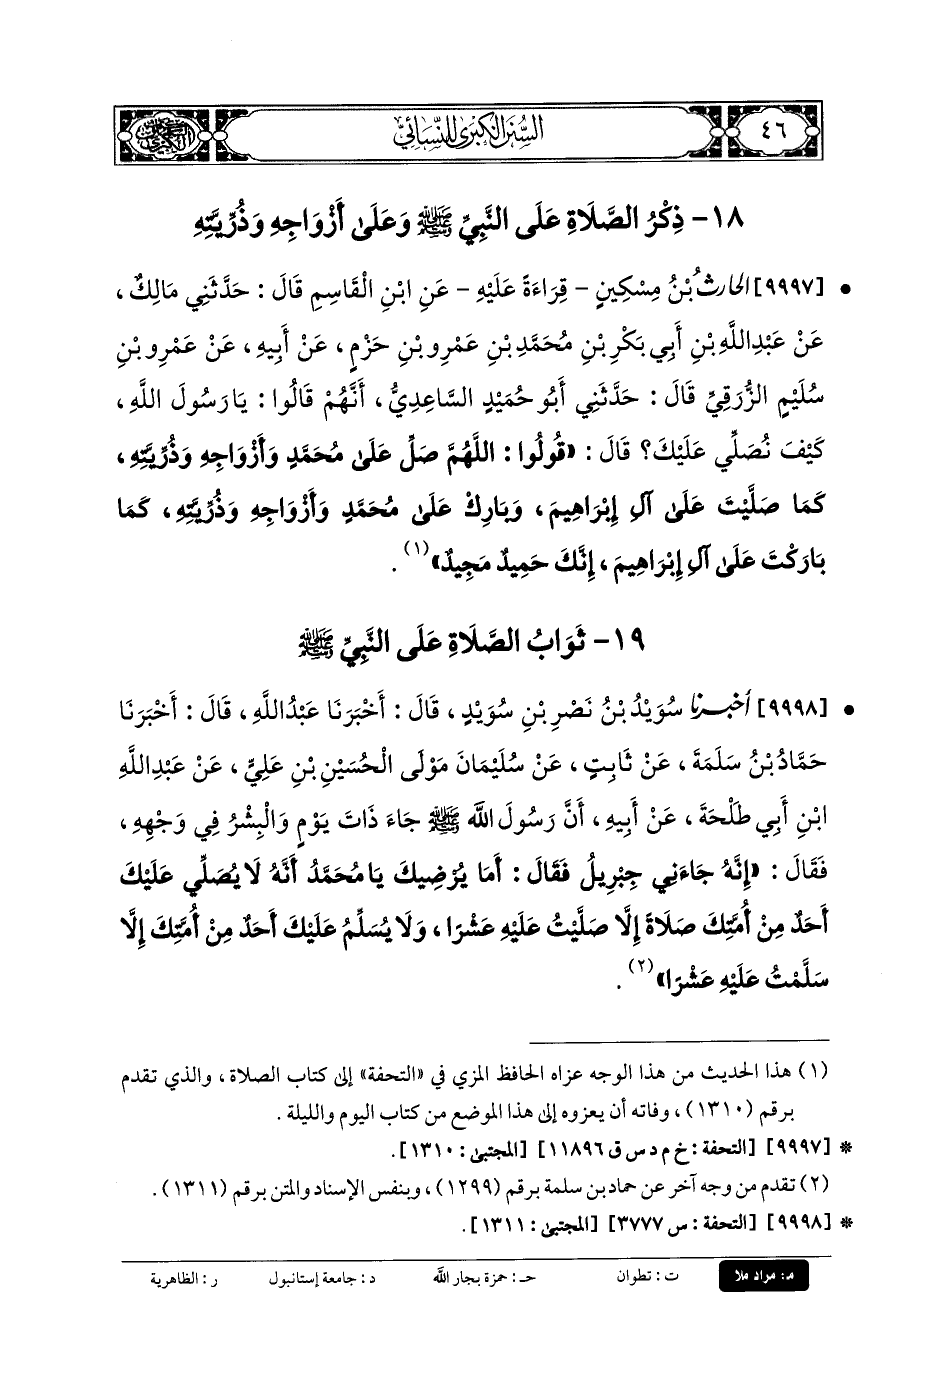 ٤٦
السنن الكبرى للنسائي
١٨- ذِكْرُ الصَّلَاةِ عَلَى النَّبِيِّ ﷺ وَعَلَىٰ أَزْوَاجِهِ وَذُرِّيَّتِهِ
• [٩٩٩٧] الحَارِثُ بْنُ مِسْكِينٍ - قِرَاءَةً عَلَيْهِ - عَنِ ابْنِ الْقَاسِمِ قَالَ : حَدَّثَنِي مَالِكٌ ،
عَنْ عَبْدِ اللَّهِ بْنِ أَبِي بَكْرِ بْنِ مُحَمَّدِ بْنِ عَمْرِو بْنِ حَزْمٍ ، عَنْ أَبِيهِ ، عَنْ عَمْرِو بْنِ
سُلَيْمٍ الزُّرَقِيِّ قَالَ : حَدَّثَنِي أَبُو حُمَيْدٍ السَّاعِدِيُّ ، أَنَّهُمْ قَالُوا : يَا رَسُولَ اللَّهِ ،
كَيْفَ نُصَلِّي عَلَيْكَ؟ قَالَ : «قُولُوا : اللَّهُمَّ صَلِّ عَلَىٰ مُحَمَّدٍ وَأَزْوَاجِهِ وَذُرِّيَّتِهِ ،
كَمَا صَلَّيْتَ عَلَىٰ آلِ إِبْرَاهِيمَ ، وَبَارِكْ عَلَىٰ مُحَمَّدٍ وَأَزْوَاجِهِ وَذُرِّيَّتِهِ ، كَمَا
بَارَكْتَ عَلَىٰ آلِ إِبْرَاهِيمَ ، إِنَّكَ حَمِيدٌ مَجِيدٌ»(١) .
١٩- ثَوَابُ الصَّلَاةِ عَلَى النَّبِيِّ ﷺ
• [٩٩٩٨] أَخْبَرَنَا سُوَيْدُ بْنُ نَصْرِ بْنِ سُوَيْدٍ ، قَالَ : أَخْبَرَنَا عَبْدُ اللَّهِ ، قَالَ : أَخْبَرَنَا
حَمَّادُ بْنُ سَلَمَةَ ، عَنْ ثَابِتٍ ، عَنْ سُلَيْمَانَ مَوْلَى الْحُسَيْنِ بْنِ عَلِيٍّ ، عَنْ عَبْدِ اللَّهِ
ابْنِ أَبِي طَلْحَةَ ، عَنْ أَبِيهِ ، أَنَّ رَسُولَ اللَّه ﷺ جَاءَ ذَاتَ يَوْمٍ وَالْبِشْرُ فِي وَجْهِهِ ،
فَقَالَ : «إِنَّهُ جَاءَنِي جِبْرِيلُ فَقَالَ : أَمَا يُرْضِيكَ يَا مُحَمَّدُ أَنَّهُ لَا يُصَلِّي عَلَيْكَ
أَحَدٌ مِنْ أُمَّتِكَ صَلَاةً إِلَّا صَلَّيْتُ عَلَيْهِ عَشْرًا ، وَلَا يُسَلِّمُ عَلَيْكَ أَحَدٌ مِنْ أُمَّتِكَ إِلَّا
سَلَّمْتُ عَلَيْهِ عَشْرًا»(٢) .
(١) هذا الحديث من هذا الوجه عزاه الحافظ المزي في «التحفة» إلى كتاب الصلاة ، والذي تقدم
برقم (١٣١٠) ، وفاته أن يعزوه إلى هذا الموضع من كتاب اليوم والليلة .
* [٩٩٩٧] [التحفة : خ م د س ق ١١٨٩٦] [المجتبى : ١٣١٠].
(٢) تقدم من وجه آخر عن حماد بن سلمة برقم (١٢٩٩) ، وبنفس الإسناد والمتن برقم (١٣١١) .
* [٩٩٩٨] [التحفة : س ٣٧٧٧] [المجتبى : ١٣١١].
م: مراد ملا ت : تطوان حـ : حمزة بجار اللَّه د : جامعة إستانبول ر : الظاهرية